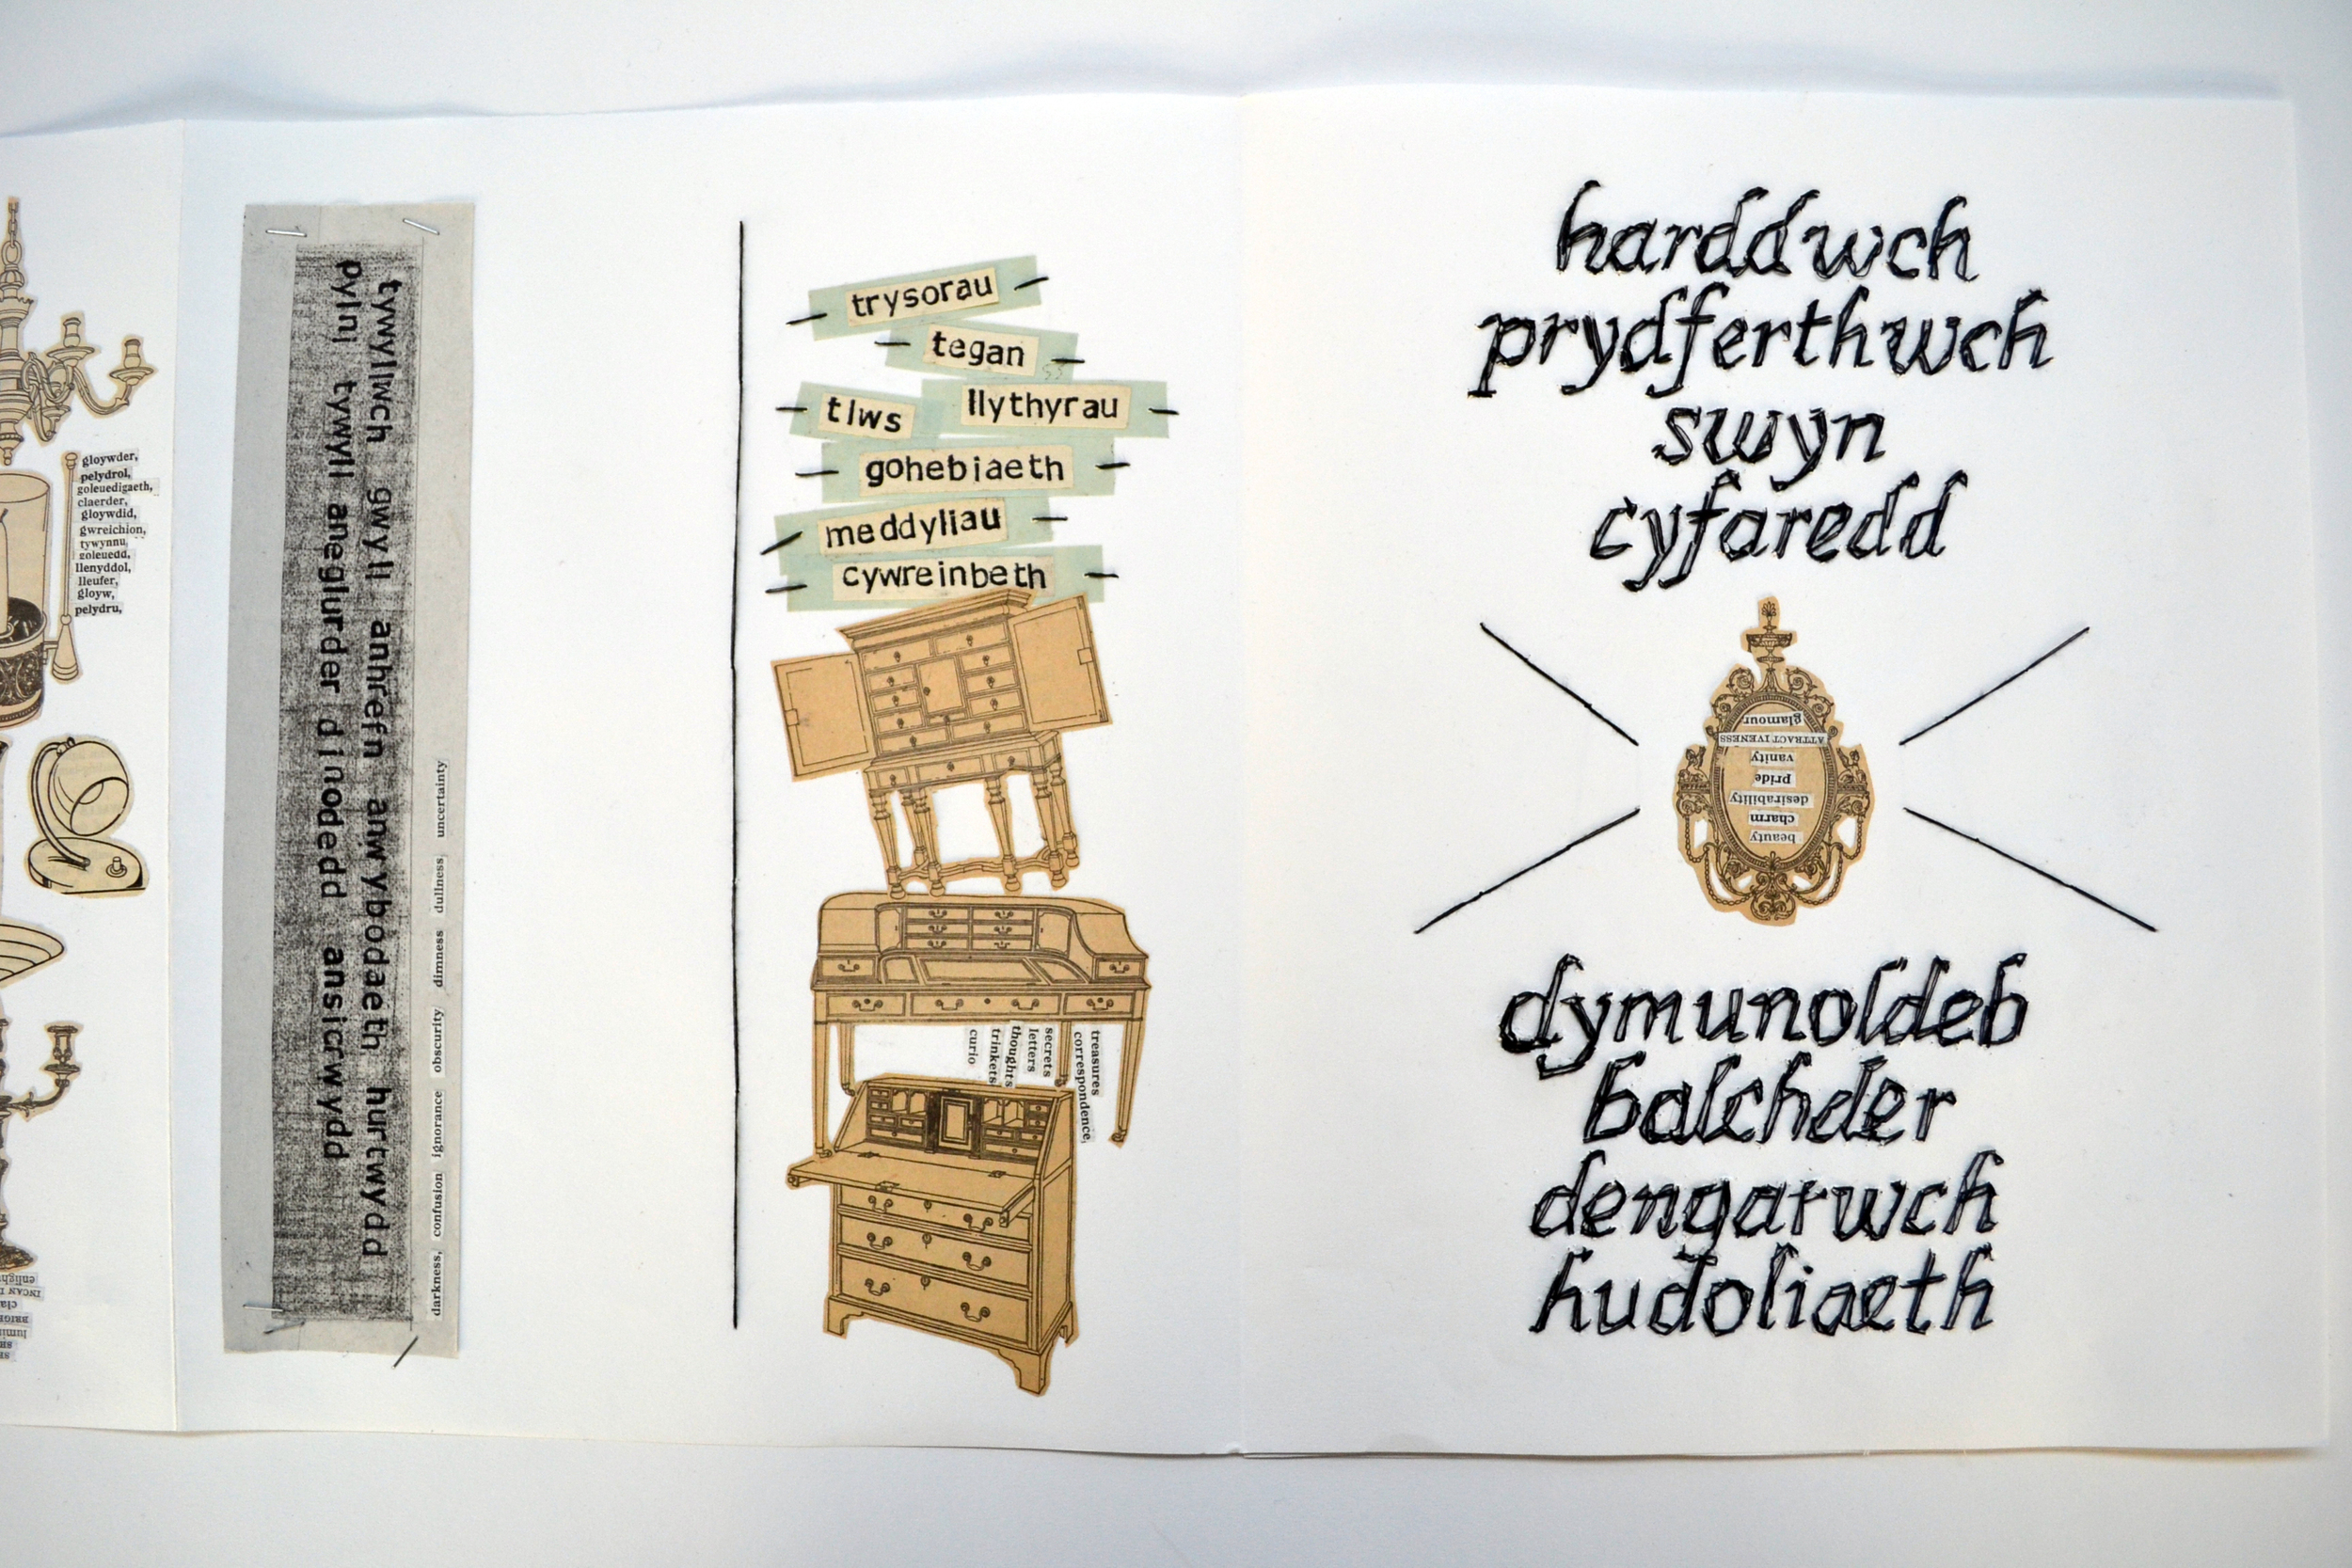 gloywder,
pelydrol,
goleuedigaeth,
claerder,
gloywdid,
gwreichion,
tywynnu,
goleuedd,
llenyddol,
lleufer,
gloyw,
pelydru,
tywyllwch gwyll anhrefn anwybodaeth hurtwydd
pylni tywyll aneglurder dinodedd ansicrwydd
darkness, confusion ignorance obscurity dimness dullness uncertainty
trysorau
tegan
tlws llythyrau
gohebiaeth
meddyliau
cywreinbeth
treasures
correspondence,
secrets
letters
thoughts
trinkets
curio
harddwch
prydferthwch
swyn
cyfaredd
beauty
charm
desirability
pride
vanity
ATTRACTIVENESS
glamour
dymunoldeb
balchder
dengarwch
hudoliaeth